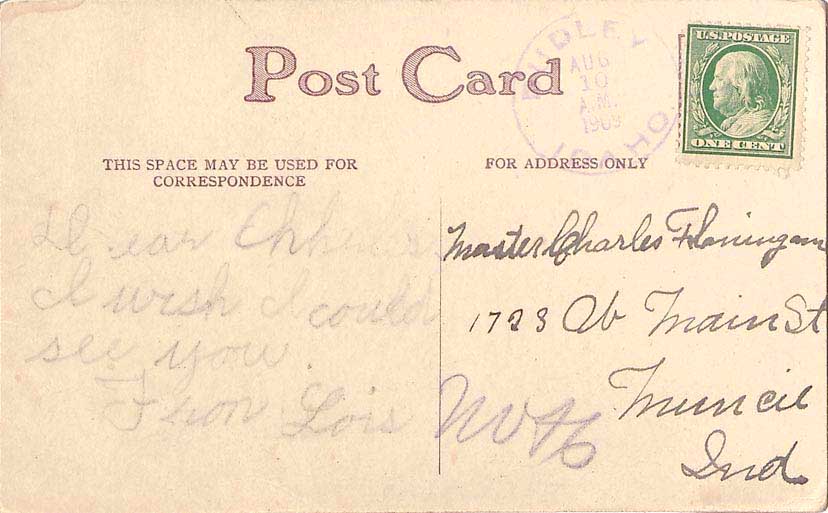 Post Card
DUDLEY
AUG
10
A.M.
1909
IDAHO
U.S. POSTAGE
ONE CENT
THIS SPACE MAY BE USED FOR
CORRESPONDENCE
FOR ADDRESS ONLY
Dear
I wish I could
see you
From Lois
Master Charles Flaningam
1723 W Main St
Muncie
Ind.